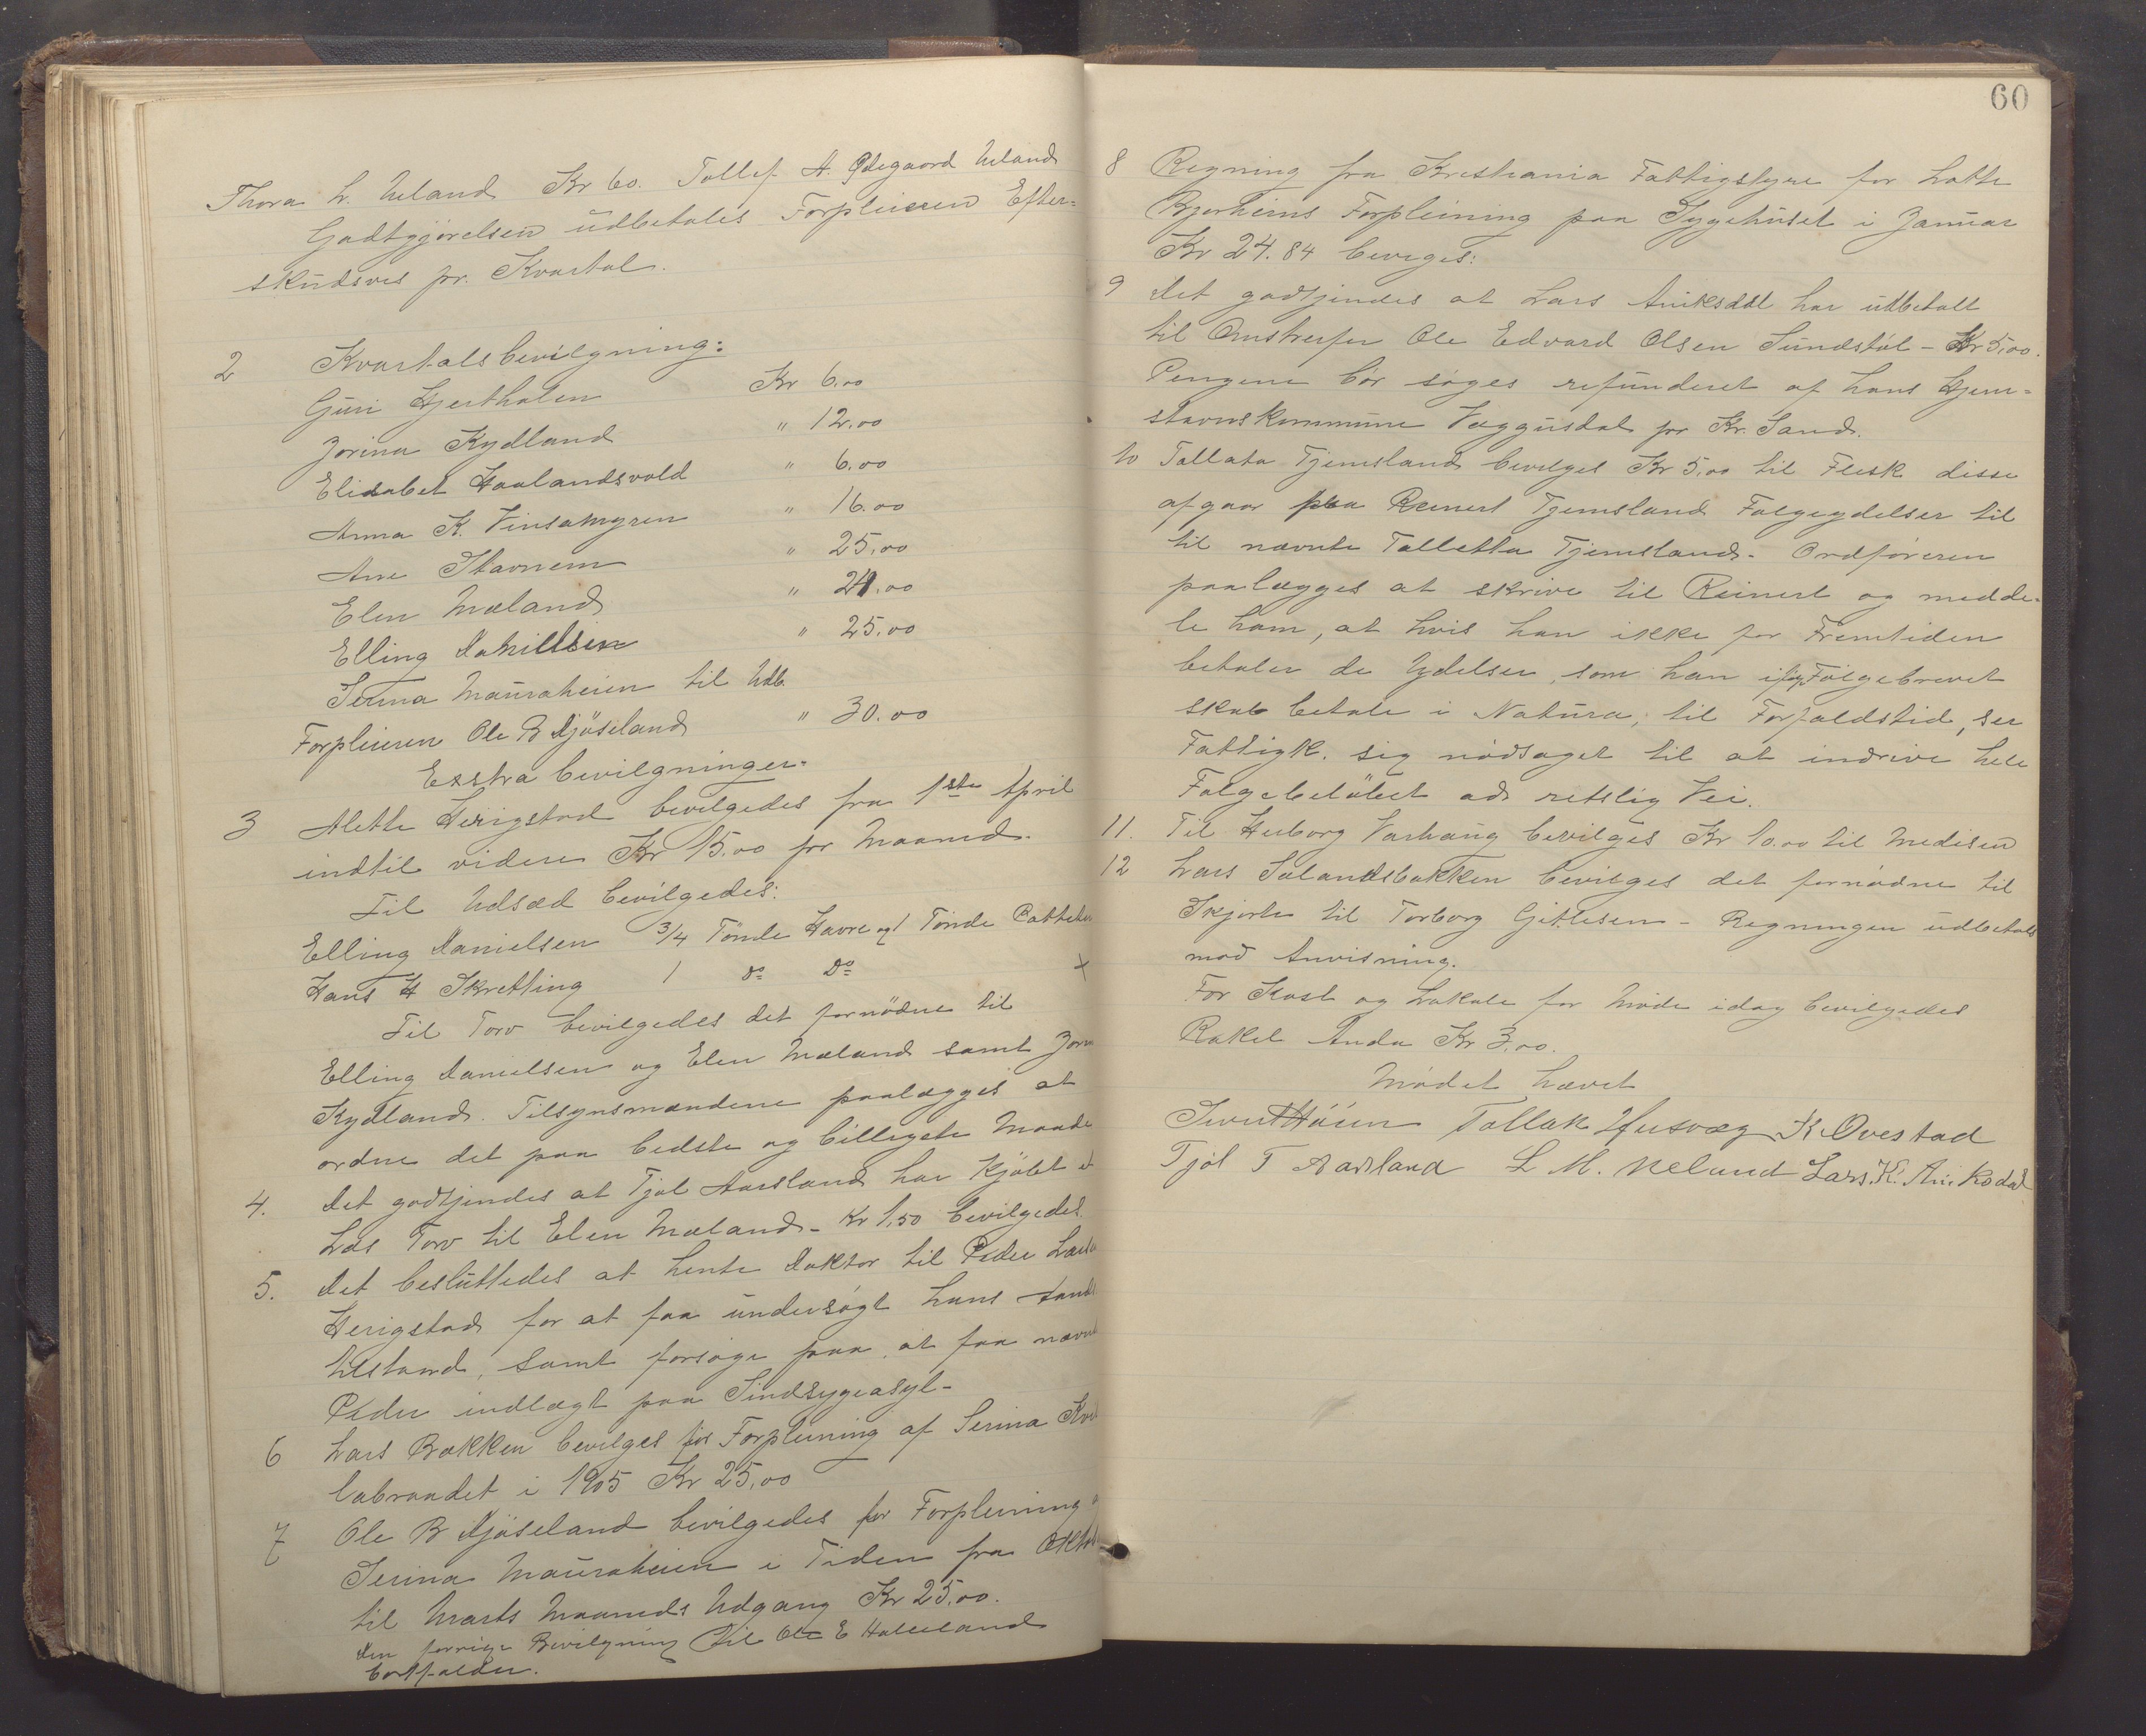 Thora L. Ueland Kr 60. Tollef A. Ødegaard Ueland
Godtgjörelsen udbetales Forpleieren Efter=
skudsvis pr. Kvartal.
2 Kvartalsbevilgning:
Guri Hjertholen Kr 6.00
Jorina Kydland " 12.00
Elisabet Haalandsvold " 6.00
Anna K. Vinsamyren " 16.00
Ane Stavnem " 25.00
Elen Mæland " 21.00
Elling Danillsen " 25.00
Serina Mauraheien til Udb.
Forpleieren Ole B Njöseland " 30.00
Exstra bevilgninger.
3 Alette Herigstad bevilgedes fra 1ste April
indtil videre Kr 15.00 pr Maaned.
Til Udsæd bevilgedes:
Elling Danielsen 3/4 Tönde Havre og 1 Tönde Potteter
Hans H Skretting 1 do Do +
Til Torv bevilgedes det fornödne til
Elling Danielsen og Elen Mæland samt Jorina
Kydland. Tilsynsmændene paalægges at
ordne det paa bedste og billigste Maade
4. Det godtjendes at Tjöl Aarsland har Kjöbt et
Læs Torv til Elen Mæland - Kr 1,50 bevilgedes.
5. Det besluttedes at hente Doktor til Peder Larsen
Herigstad for at faa undersögt hans Sinds
tilstand, samt forsöge paa, at faa nævnte
Peder indlagt paa Sindsygeasyl-
6 Lars Bakken bevilges for Forpleining af Serina
i 1905 Kr 25,00
7 Ole B Njöseland bevilgedes for Forpleining af
Serina Mauraheien i Tiden fra Oktober
til Marts Maaneds Udgang Kr 25,00.
den forrige Bevilgning til Ole E
bortfalder.
60
8 Regning fra Kristiania Fattigstyre for Lotte
Bjorheims Forpleining paa Sygehuset i Januar
Kr 24.84 beviges:
9 Det godtjendes at Lars Aniksdal har udbetalt
til Omstreifer Ole Edvard Olsen Sundstöl - Kr 5,00.
Pengene bör söges refunderet af hans Hjem=
stavnskommune Væggusdal pr Kr. Sand.
10 Tallata Tjemsland bevilges Kr 5,00 til Flesk disse
afgaar paa Reinert Tjemsland Folgeydelser til
til nævnte Talletta Tjemsland. Ordföreren
paalægges at skrive til Reinert og medde-
le ham, at hvis han ikke for Fremtiden
betaler de Ydelser, som han ifölg Fölgebrevet
skal betale i Natura, til Forfaldstid, ser
Fattigk. sig nödsaget til at indrive hele
Folgebelöbet ad retslig Vei.
11. Til Herborg Varhaug bevilges Kr 10.00 til Medisin
12 Lars Salandsbakken bevilges det fornödne til
Skjorte til Torborg Gitlesen - Regningen udbetales
mod Anvisning.
For Kost og Lokale for Möde idag bevilgedes
Rakel Anda Kr 3.00.
Mödet hævet
Sivert Höien Tollak Husvæg K. Ovestad
Tjöl T Aarsland L M. Ueland Lars. K. Aniksdal